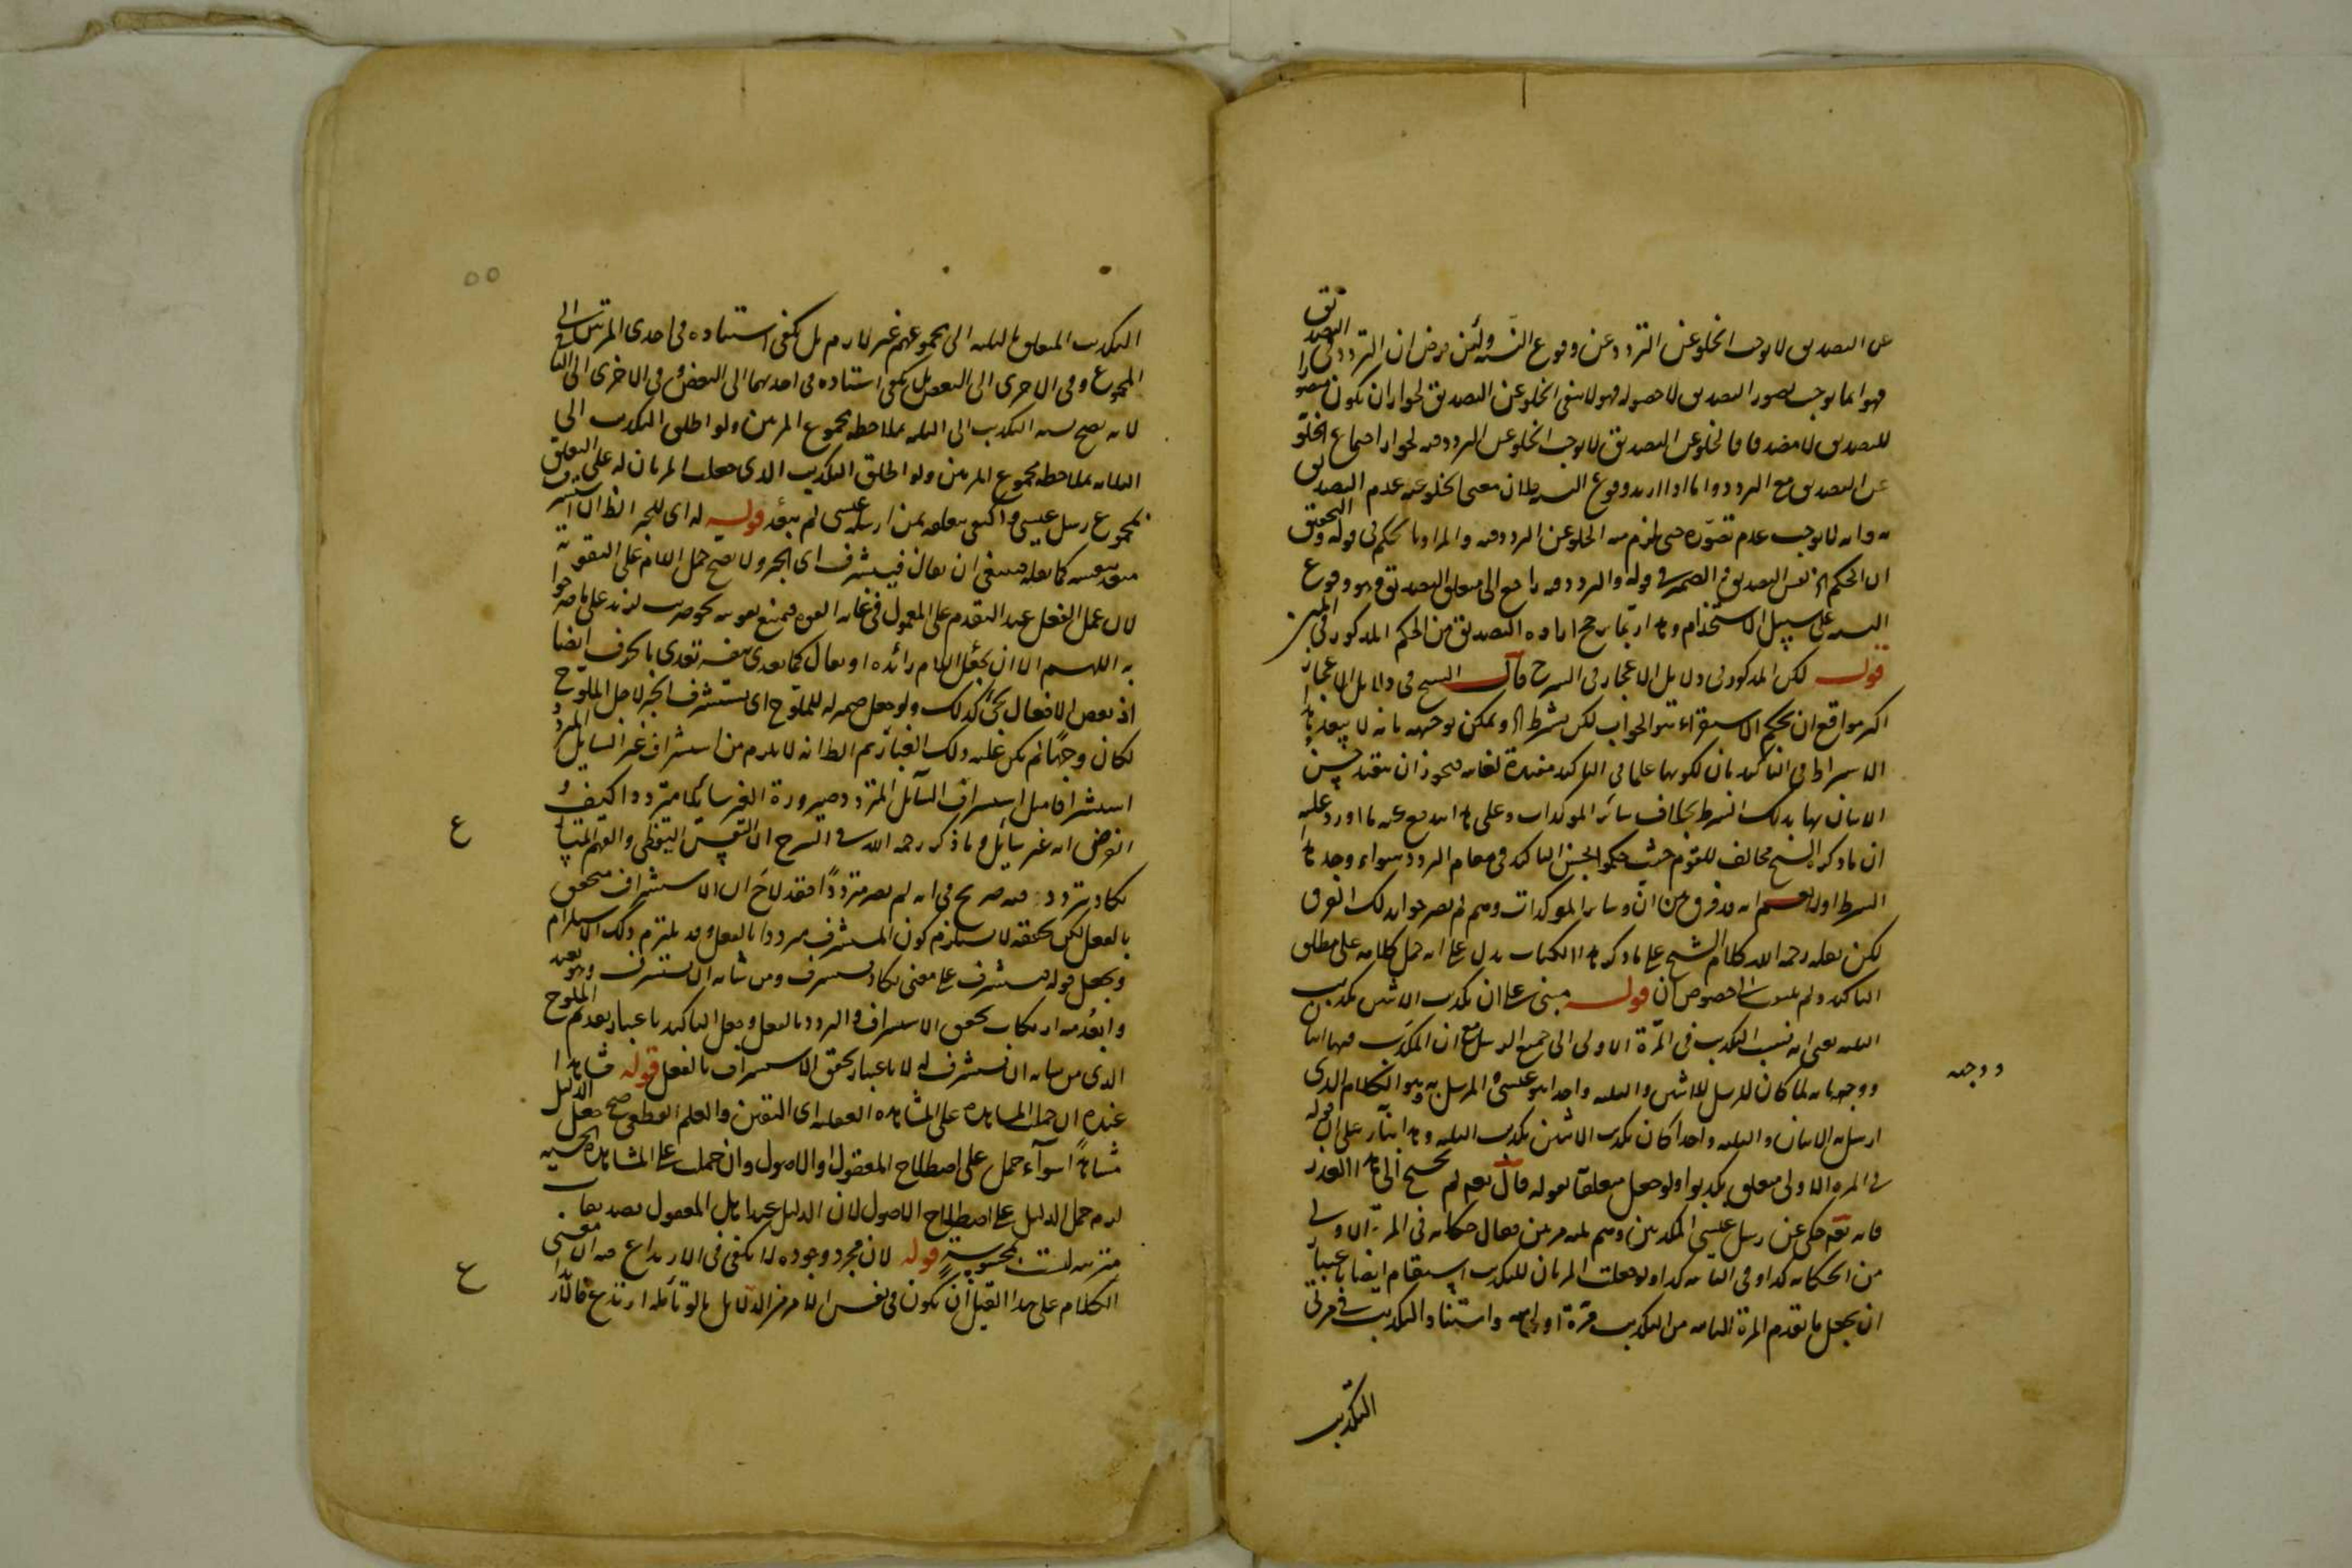 عن التصديق لا يوجب الخلو عن التردد عن وقوع النسبة ولئن فرض ان التردد في التصديق
فهو انما يوجب تصور التصديق لا حصوله فهو لا ينفى الخلو عن التصديق لجواز ان يكون متصورا
للتصديق لا مصدقا فالخلو عن التصديق لا يوجب الخلو عن التردد فيه لجواز اجتماع الخلو
عن التصديق مع التردد واما اذا اريد وقوع النسبة فلان معنى الخلو عنه عدم التصديق
به وانه لا يوجب عدم تصوره حتى يلزم منه الخلو عن التردد فيه والمراد بالحكم فى قوله وتحقيق
ان الحكم نفس التصديق الضمير فى قوله والتردد فيه راجع الى متعلق التصديق وهو وقوع
النسبة على سبيل الاستخدام وهذا ربما يرجح ارادة التصديق من الحكم المذكور فى المتن
قوله لكن المذكور فى دلايل الاعجاز فى الشرح قال الشيخ فى دلايل الاعجاز
اكثر مواقع ان بحكم الاستقراء هو الجواب لكن بشرط ويمكن توجيهه بانه لا يبعد هذا
الاشتراط فى التاكيد بان لكونها علما فى التاكيد مفيدة لغايته فيجوز ان يقيد حسن
الاتيان بها بذلك الشرط بخلاف سائر الموكدات وعلى هذا اندفع عنه ما اورد عليه
ان ما ذكره الشيخ مخالف للقوم حيث حكموا بحسن التاكيد فى مقام التردد سواء وجد هذا
الشرط اولا نعم انه قد فرق بين ان وسائر الموكدات وهم لم يصرحوا بذلك الفرق
لكن نقله رحمه الله كلام الشيخ على ما ذكره هذا الكتاب يدل على انه حمل كلامه على مطلق
التاكيد ولم يلتفت الى خصوص ان قوله مبنى على ان تكذيب الاثنين تكذيب
الثلثة يعنى انه نسب التكذيب فى المرة الاولى الى جميع الرسل مع ان المكذب فيها اثنان
ووجهه انه لما كان المرسل للاثنين والثلثة واحدا هو عيسى والمرسل به وهو الكلام الذى
ووجهه
ارسل به الاثنان والثلثة واحدا كان تكذيب الاثنين تكذيب الثلثة وهذا بناء على ان قوله
فى المرة الاولى متعلق بكذبوا ولو جعل متعلقا بقوله قال نعم لم يحتج الى هذا العذر
فانه تعالى حكى عن رسل عيسى المكذبين وهم ثلثة مرتين فقال حكاية فى المرة الاولى
من الحكاية كذا وفى الثانية كذا ولو جعلت المرتان للتكذيب استقام ايضا باعتبار
ان يجعل ما تقدم المرة الثانية من التكذيب مرة اولى واسناد التكذيب فى مرتى
التكذيب
٥٥
التكذيب المتعلق بالثلثة الى مجموعهم غير لازم بل يكفى استناده فى احدى المرتين الى
المجموع وفى الاخرى الى البعض بل يكفى استناده فى احديهما الى البعض وفى الاخرى الى الباقى
لانه يصح نسبة التكذيب الى الثلثة بملاحظة مجموع المرتين ولو اطلق التكذيب الى
الثلثة بملاحظة مجموع المرتين ولو اطلق التكذيب الذى جعلت المرتان له على التعلق
بمجموع رسل عيسى واكتفى بتعلقه بمن ارسله عيسى لم يبعد قوله له اى للخبر الظ ان استشرف
متعد بنفسه كما نقله فينبغى ان يقال فيستشرف اى الخبر ولا يصح حمل اللام على التقوية
لان عمل الفعل عند التقدم على المعمول فى غاية القوة فيمتنع تقويته نحو ضربت لزيد على ما صرحوا
به اللهم الا ان يجعل اللام زائدة او يقال كما تعدى بنفسه تعدى بالحرف ايضا
اذ بعض الافعال يجئ كذلك ولو جعل ضمير له للملوح اى يستشرف الخبر لاجل الملوح
لكان وجها لم يكن عليه ذلك الغبار ثم الظ انه لا يلزم من استشراف غير السايل المتردد
استشرافا مثل استشراف السائل المتردد صيرورة الغير سائلا مترددا كيف و
الفرض انه غير سائل وما ذكره رحمه الله فى الشرح ان النفس اليقظى والفهم المتسارع
يكاد يتردد فيه صريح فى انه لم يصر مترددا فقد لاح ان الاستشراف متحقق
بالفعل لكن تحققه لا يستلزم كون المستشرف مترددا بالفعل وقد يلتزم ذلك الاستلزام
ويجعل قوله فيستشرف على معنى يكاد يستشرف ومن شانه ان يستشرف وهو بعيد
وابعد منه ارتكاب تحقق الاستشراف والتردد بالفعل وجعل التاكيد باعتبار تقديم الملوح
الذى من شانه ان يستشرف له لا باعتبار تحقق الاستشراف بالفعل قوله مشاهدا
عنده ان حملت المشاهدة على المشاهدة العقلية اى اليقين والعلم القطعى صح جعل الدليل
مشاهدا سواء حمل على اصطلاح المعقول او الاصول وان حملت على المشاهدة الحسية
لزم حمل الدليل على اصطلاح الاصول لان الدليل عند اهل المعقول تصديقات
مترتبة ليست بمحسوسة قوله لان مجرد وجوده لا يكفى فى الارتداع فيه ان معنى
الكلام على هذا القيل ان يكون فى نفس الامر من الدلايل ما لو تأمله ارتدع فالايراد
ع
ع